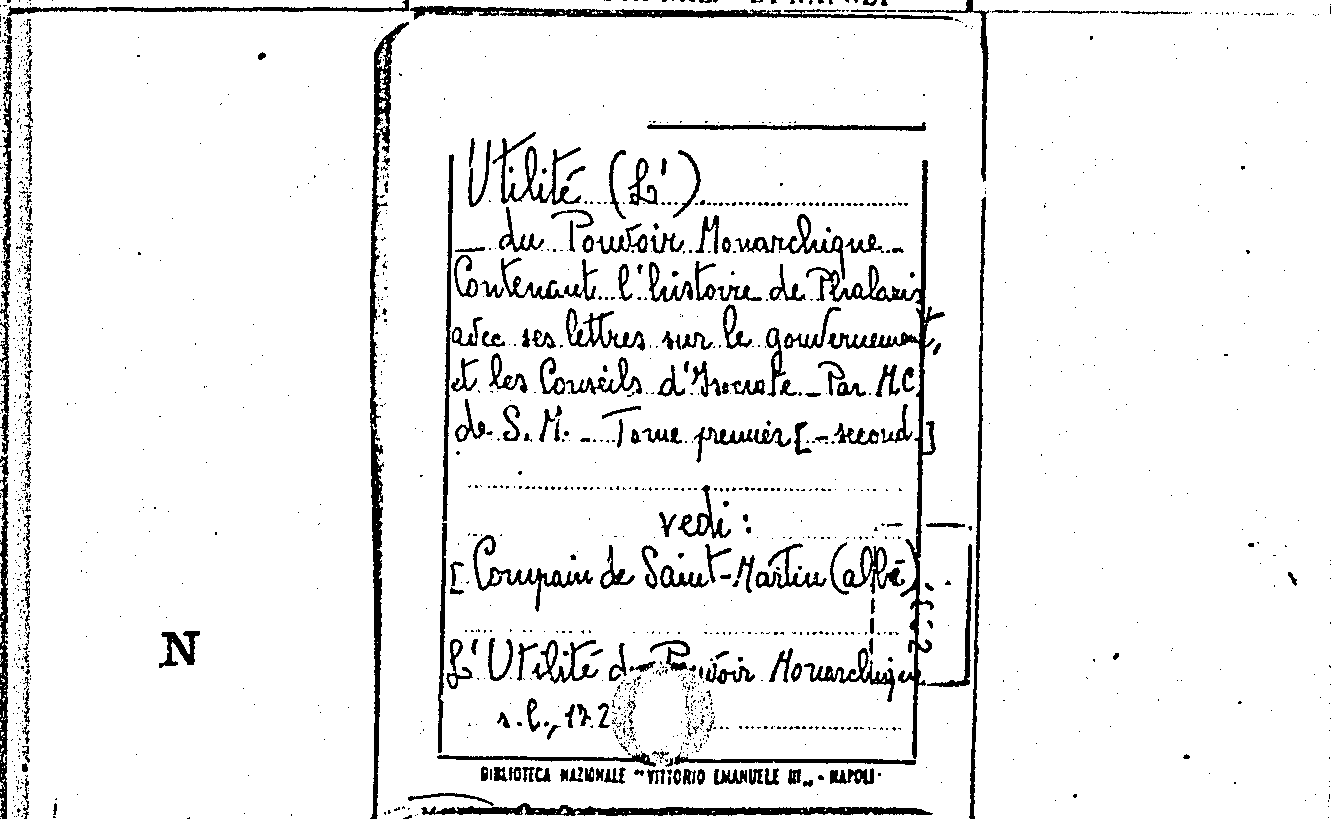 Utilité (L')
_ du Pouvoir Monarchique_
Contenant l'histoire de Phalaris
avec ses lettres sur le gouvernement,
et les Conseils d'Isocrate_Par M.C.
de S.M. _ Tome premier [-second]
vedi:
[Compain de Saint-Martin (abbé)
L'Utilité du Pouvoir Monarchique
s.l., 172
N
BIBLIOTECA NAZIONALE "VITTORIO EMANUELE III„ - NAPOLI